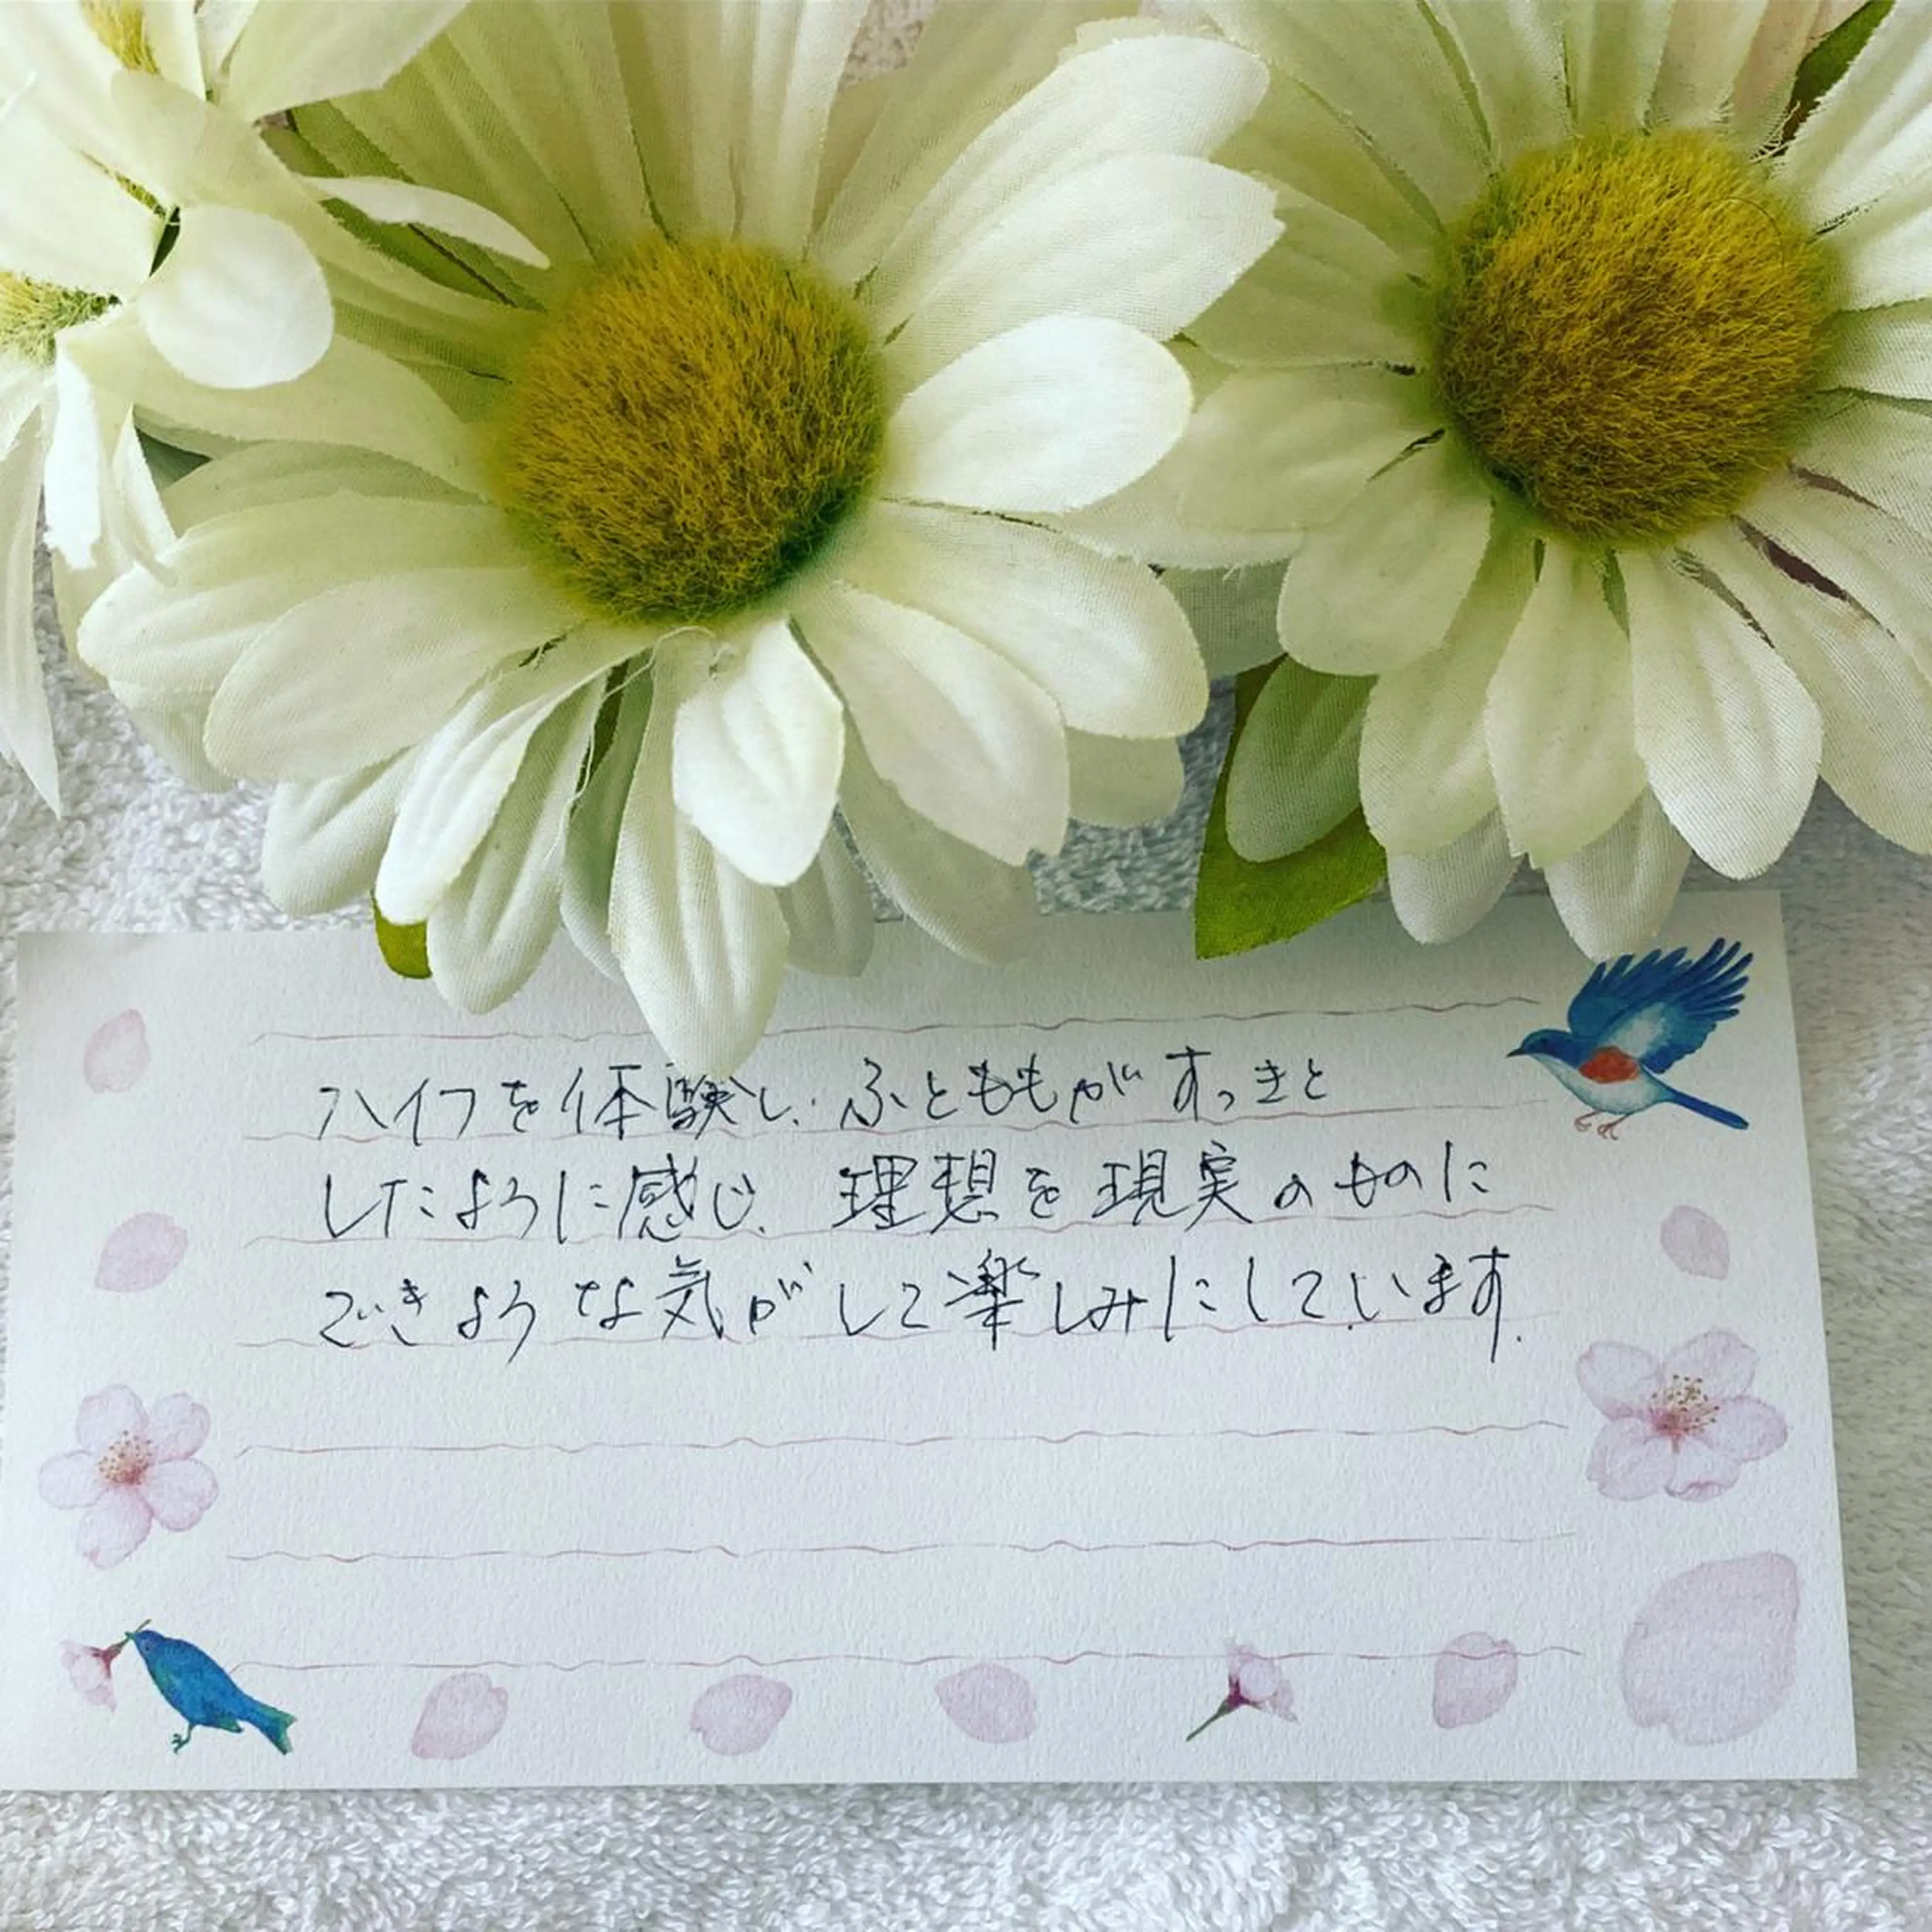 ハイフを体験し、ふとももがすっきと
したように感じ、理想を現実のものに
できような気がして楽しみにしています.